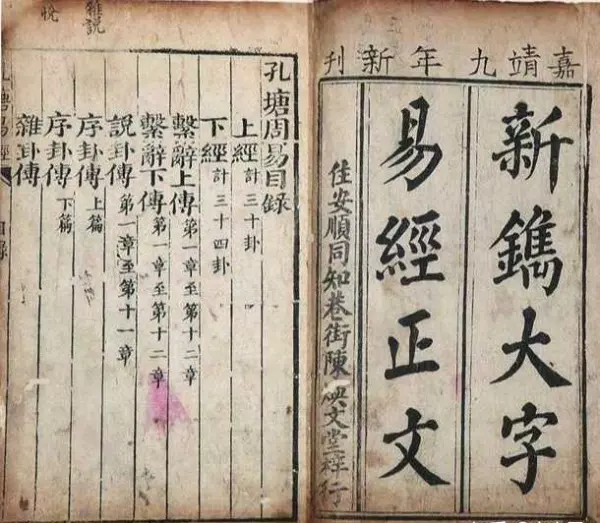 嘉靖九年新刊
新鐫大字
易經正文
住安順同知巷街陳文堂梓行
孔塘周易目錄
上經計三十卦
下經計三十四卦
繫辭上傳第一章至第十二章
繫辭下傳第一章至第十二章
說卦傳第一章至第十一章
序卦傳上篇
序卦傳下篇
雜卦傳
雜說
悅
易經